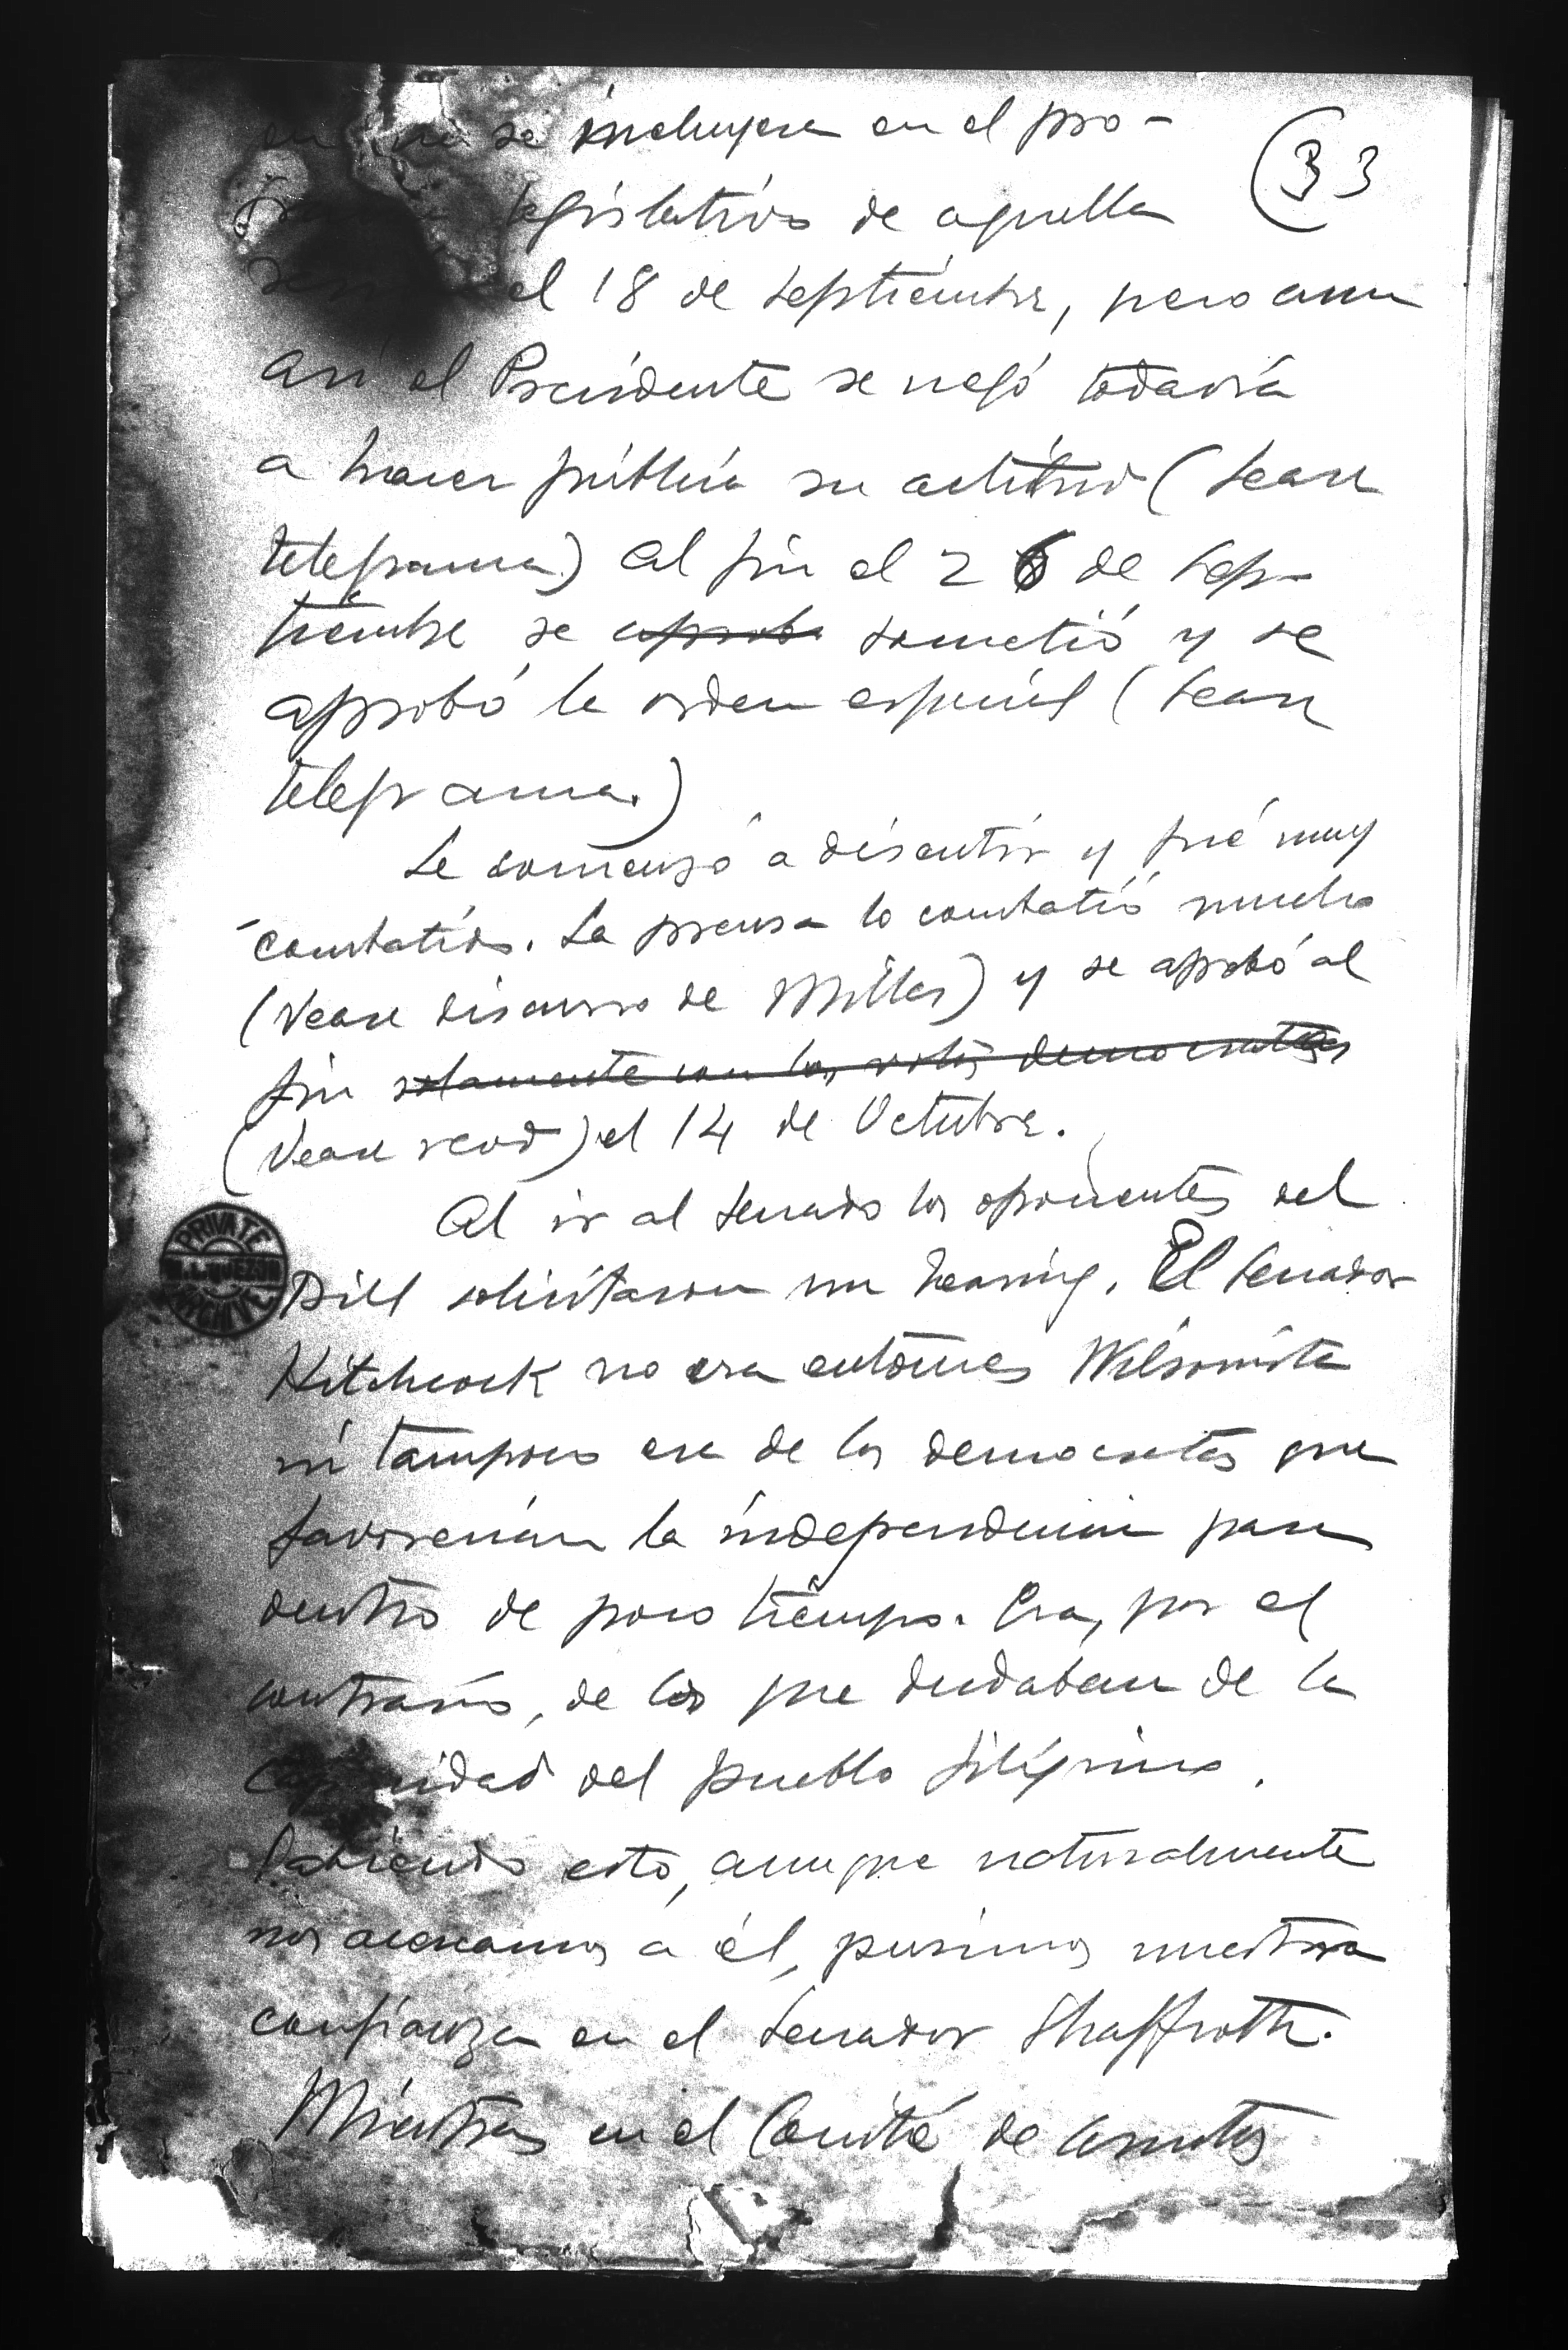 se incluyera en el pro-
(33
legislativo de aquella
el 18 de Septiembre, pero aun
asi el Presidente se negó todavia
a hacer pública su actitud (Vease
telegrama) Al fin el 26 de Sep-
tiembre se aprobó sometió y se
aprobó la orden especial (Vease
telegrama.)
Se comenzó a discutir y fué muy
combatido. La prensa lo combatió mucho
(Vease discurso de Miller) y se aprobó al
fin solamente con los votos democratas
(Vease record) el 14 de Octubre.
Al ir al Senado los oponentes del
PRIVATE
M. L. QUEZON
ARCHIVE
Bill solicitaron un hearing. El Senador
Hitchcock no era entonces Wilsonista
ni tampoco era de los democratas que
favorecian la independencia para
dentro de poco tiempo. Era, por el
contrario, de los que dudaban de la
capacidad del pueblo filipino.
Sabiendo esto, aunque naturalmente
nos acercamos a él, pusimos nuestra
confianza en el Senador Shaffroth.
Mientras en el Comité de Asuntos